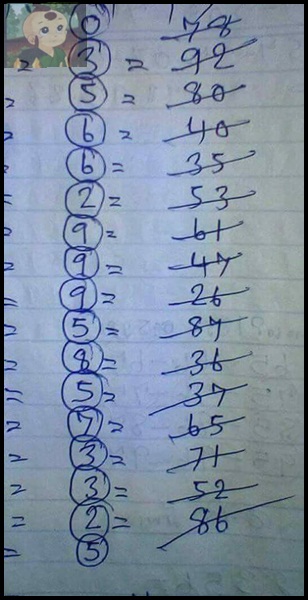 0 78
= 3 = 92
= 5 = 80
= 6 = 40
= 6 = 35
= 2 = 53
= 9 = 61
= 9 = 47
= 9 = 26
= 5 = 87
= 8 = 36
= 5 = 37
= 7 = 65
= 3 = 71
= 3 = 52
= 2 = 86
= 5